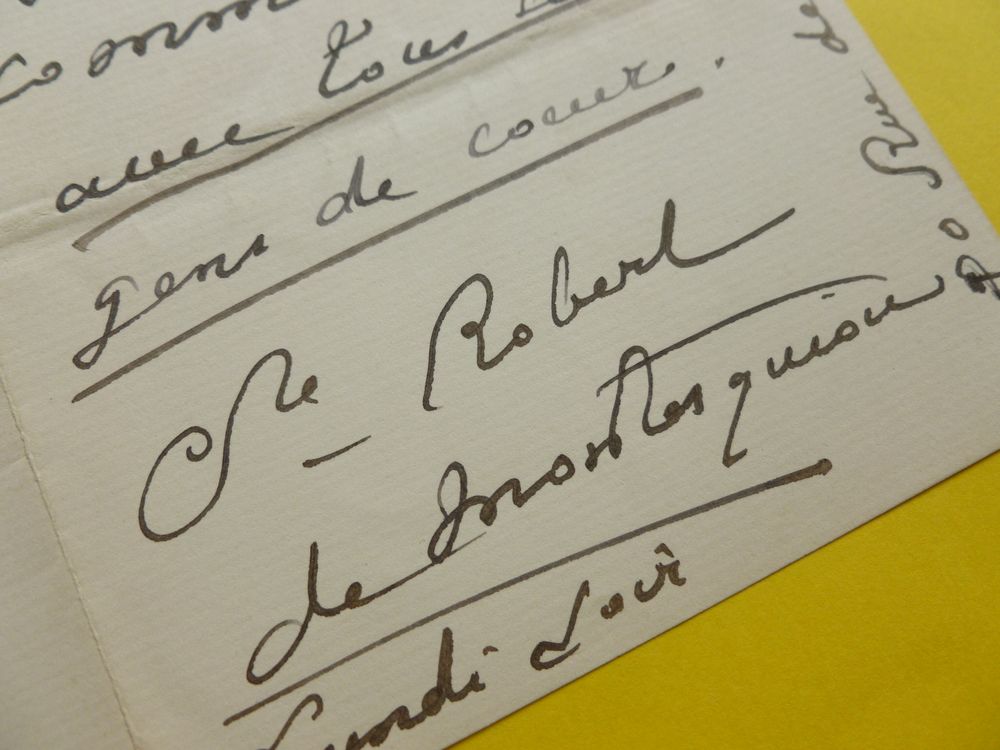 comm
avec tous
gens de coeur.
Cte Robert
de Montesquiou
Lundi Soir
Rue de